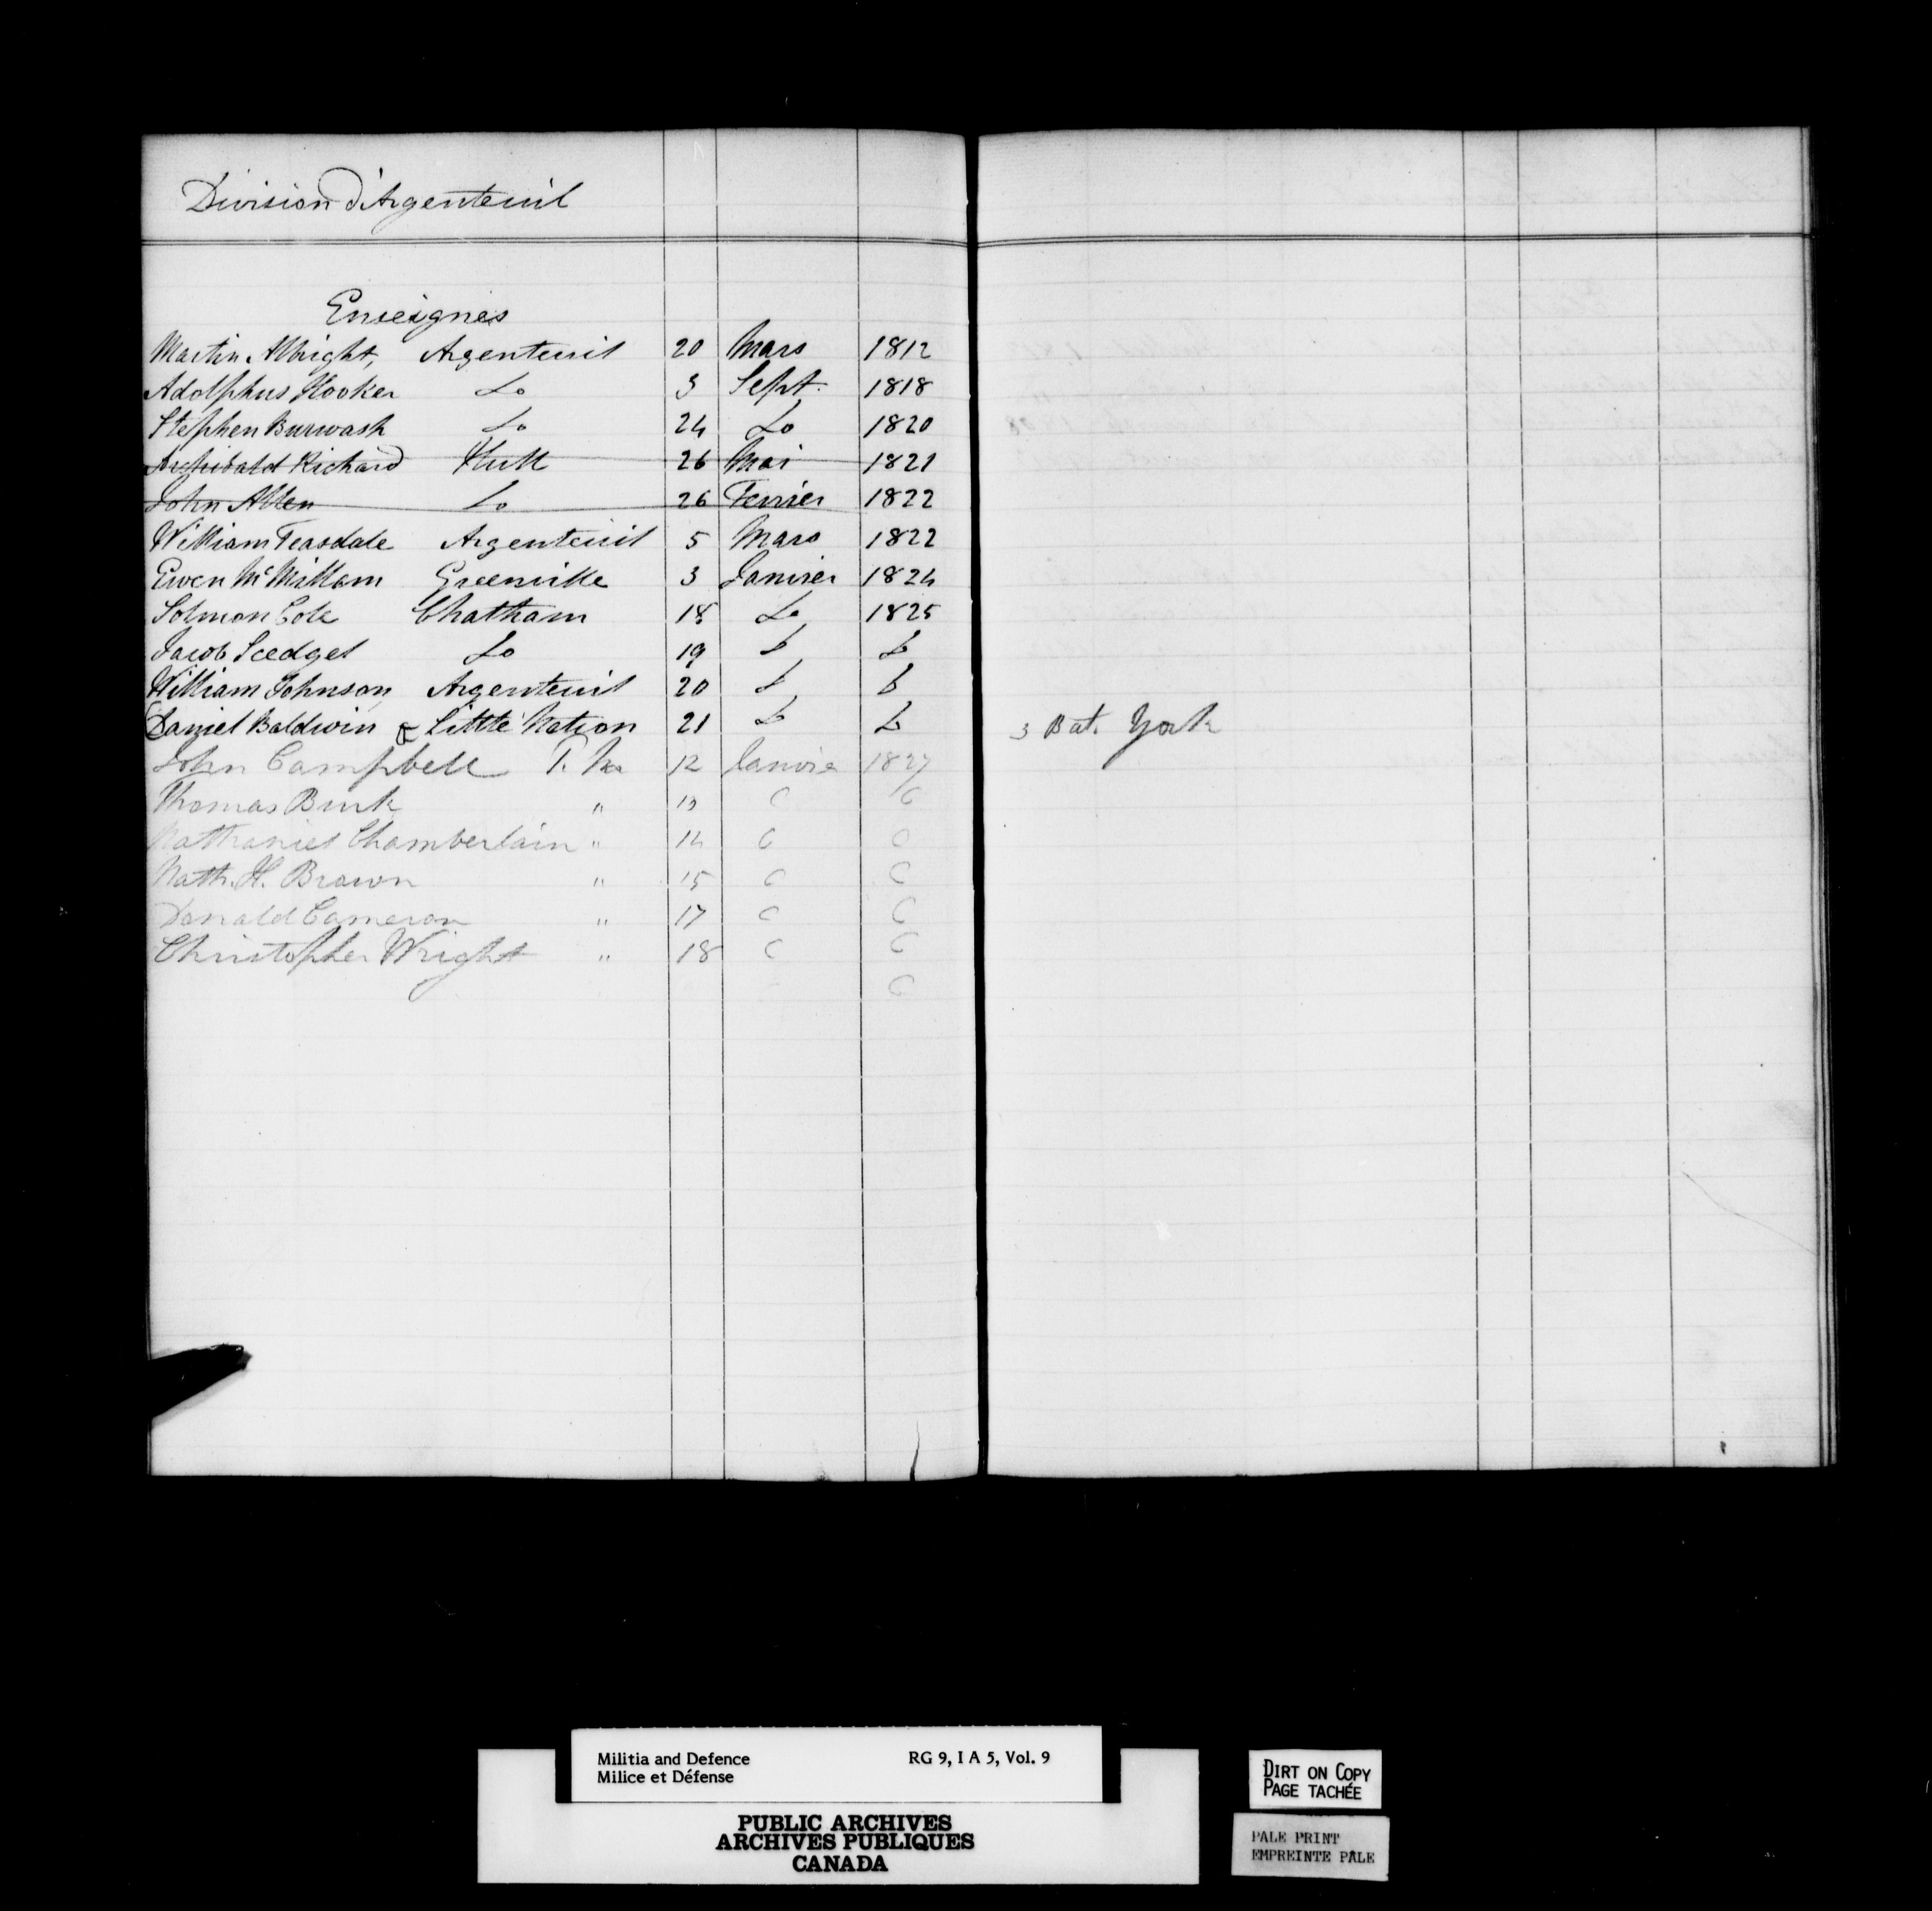 Division d'Argenteuil
Enseignes
Martin Albright, Argenteuil 20 Mars 1812
Adolphus Hooker Do 3 Sept. 1818
Stephen Burwash Do 24 Do 1820
Archibald Richard Hull 26 Mai 1821
John Allen Do 26 Fevrier 1822
William Teasdale Argenteuil 5 Mars 1822
Ewen McMillam Greenville 3 Janvier 1824
Solmon Cole Chatham 18 Do 1825
Jacob Scedgel Do 19 Do Do
William Johnson, Argenteuil 20 Do Do
Daniel Baldwin & Little Nation 21 Do Do 3 Bat. York
John Campbell P. N. 12 Janvie 1827
Thomas Burk " 13
Nathaniel Chamberlain " 14
Nath. H. Brown " 15
Donald Cameron " 17
Christopher Wright " 18
Militia and Defence RG 9, I A 5, Vol. 9
Milice et Défense
PUBLIC ARCHIVES
ARCHIVES PUBLIQUES
CANADA
DIRT ON COPY
PAGE TACHÉE
PALE PRINT
EMPREINTE PÂLE